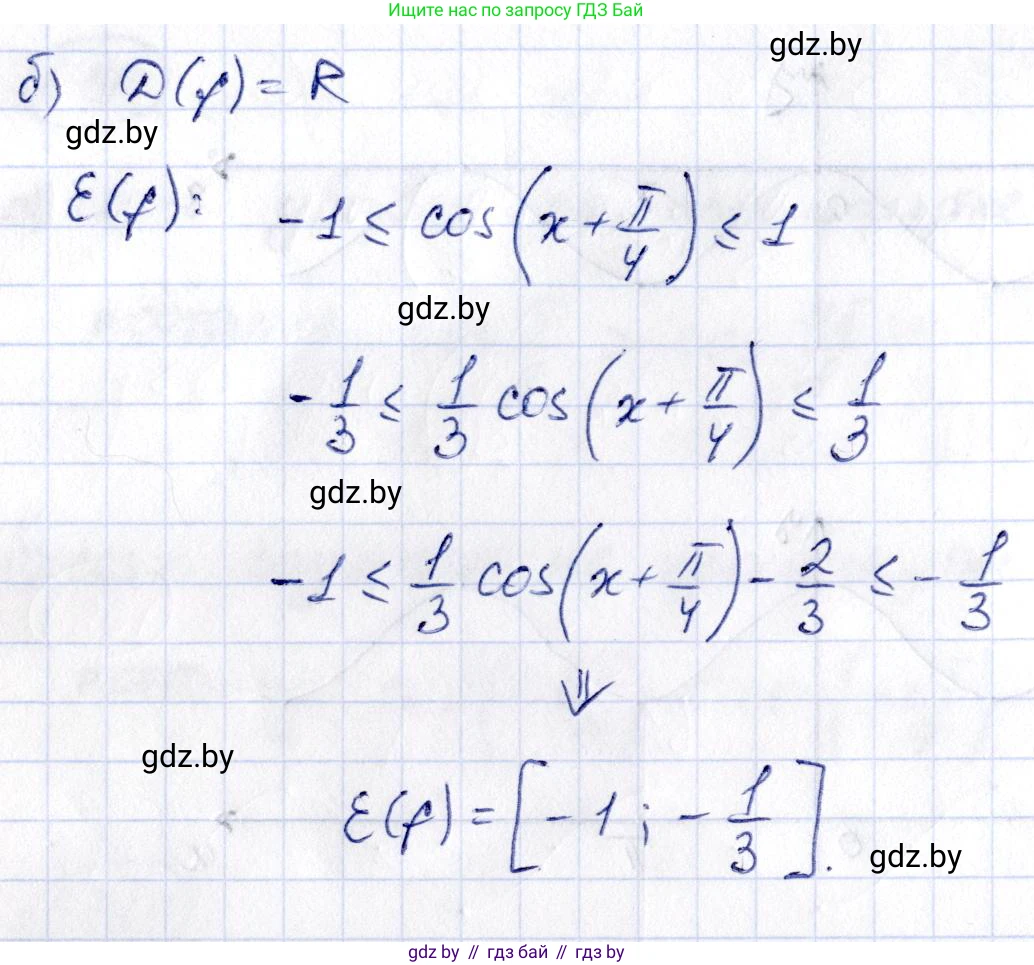 Ищите нас по запросу ГДЗ Бай
gdz.by
б) D(f) = R
gdz.by
E(f): -1 ≤ cos(x + π/4) ≤ 1
gdz.by
-1/3 ≤ 1/3 cos(x + π/4) ≤ 1/3
gdz.by
-1 ≤ 1/3 cos(x + π/4) - 2/3 ≤ -1/3
⇓
gdz.by
E(f) = [-1; -1/3].
gdz.by
gdz.by // гдз бай // гдз by